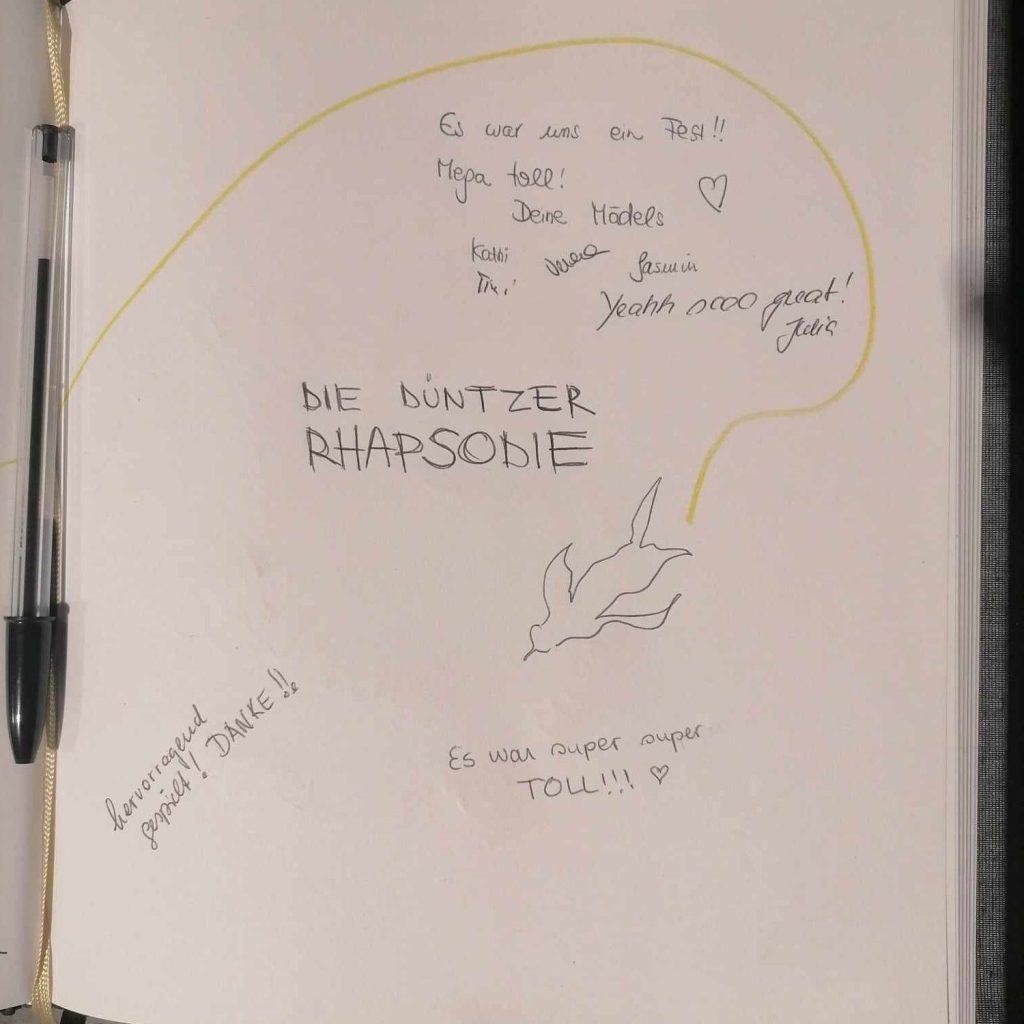 Es war uns ein Fest!!
Mega toll!
Deine Mädels
Kathi
Jasmin
Tini
Yeahh sooo great!
Julia
DIE DÜNTZER
RHAPSODIE
hervorragend
gespielt! DANKE!!
Es war super super
TOLL!!!